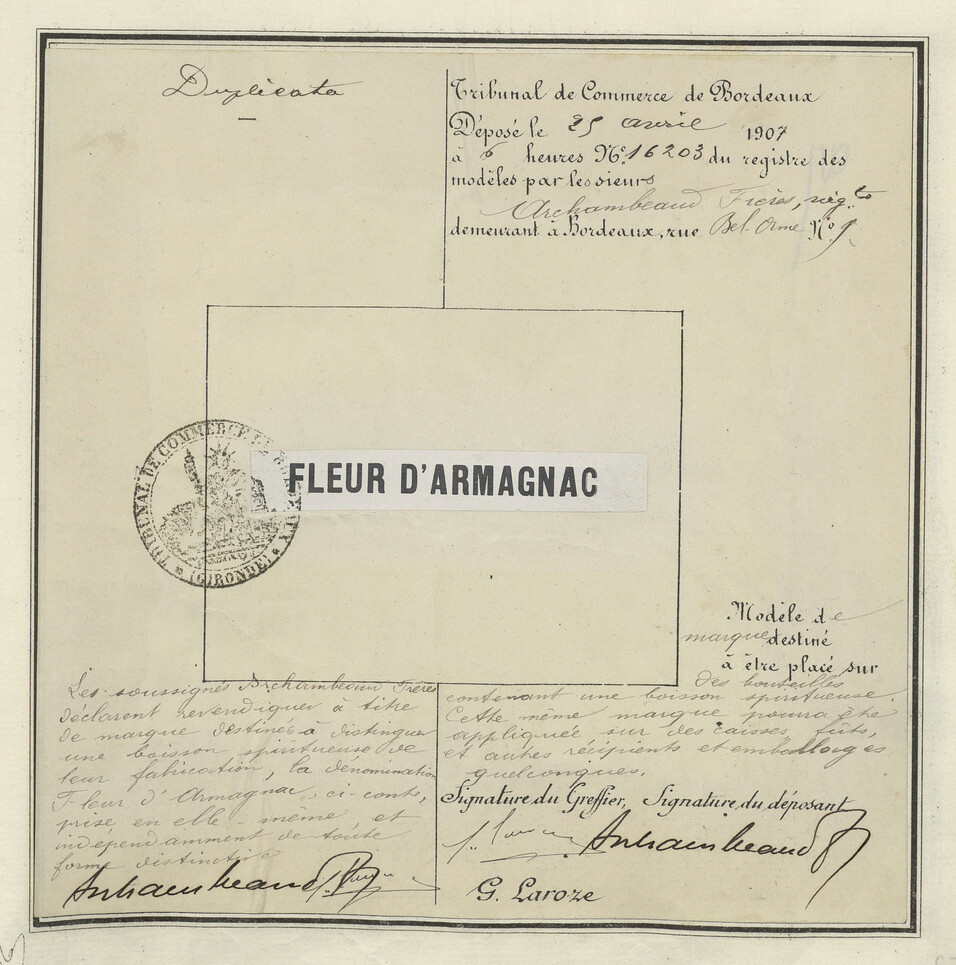 Duplicata
Tribunal de Commerce de Bordeaux
Déposé le 25 avril 1907
à 6 heures N° 16203 du registre des
modèles par les sieurs
Archambeaud Frères, nég.ts
demeurant à Bordeaux, rue Bel-Orme N° 9
TRIBUNAL DE COMMERCE DE BORDEAUX
(GIRONDE)
FLEUR D'ARMAGNAC
Modèle de
marque destiné
à être placé sur
des bouteilles
contenant une boisson spiritueuse.
Cette même marque pourra être
appliquée sur des caisses, fûts,
et autres récipients et emballages
quelconques.
Les soussignés Archambeaud Frères
déclarent revendiquer à titre
de marque destinée à distinguer
une boisson spiritueuse de
leur fabrication, la dénomination
Fleur d'Armagnac, ci-contre,
prise en elle-même et
indépendamment de toute
forme distinctive
Archambeaud
Signature du Greffier, Signature du déposant
Archambeaud
G. Laroze